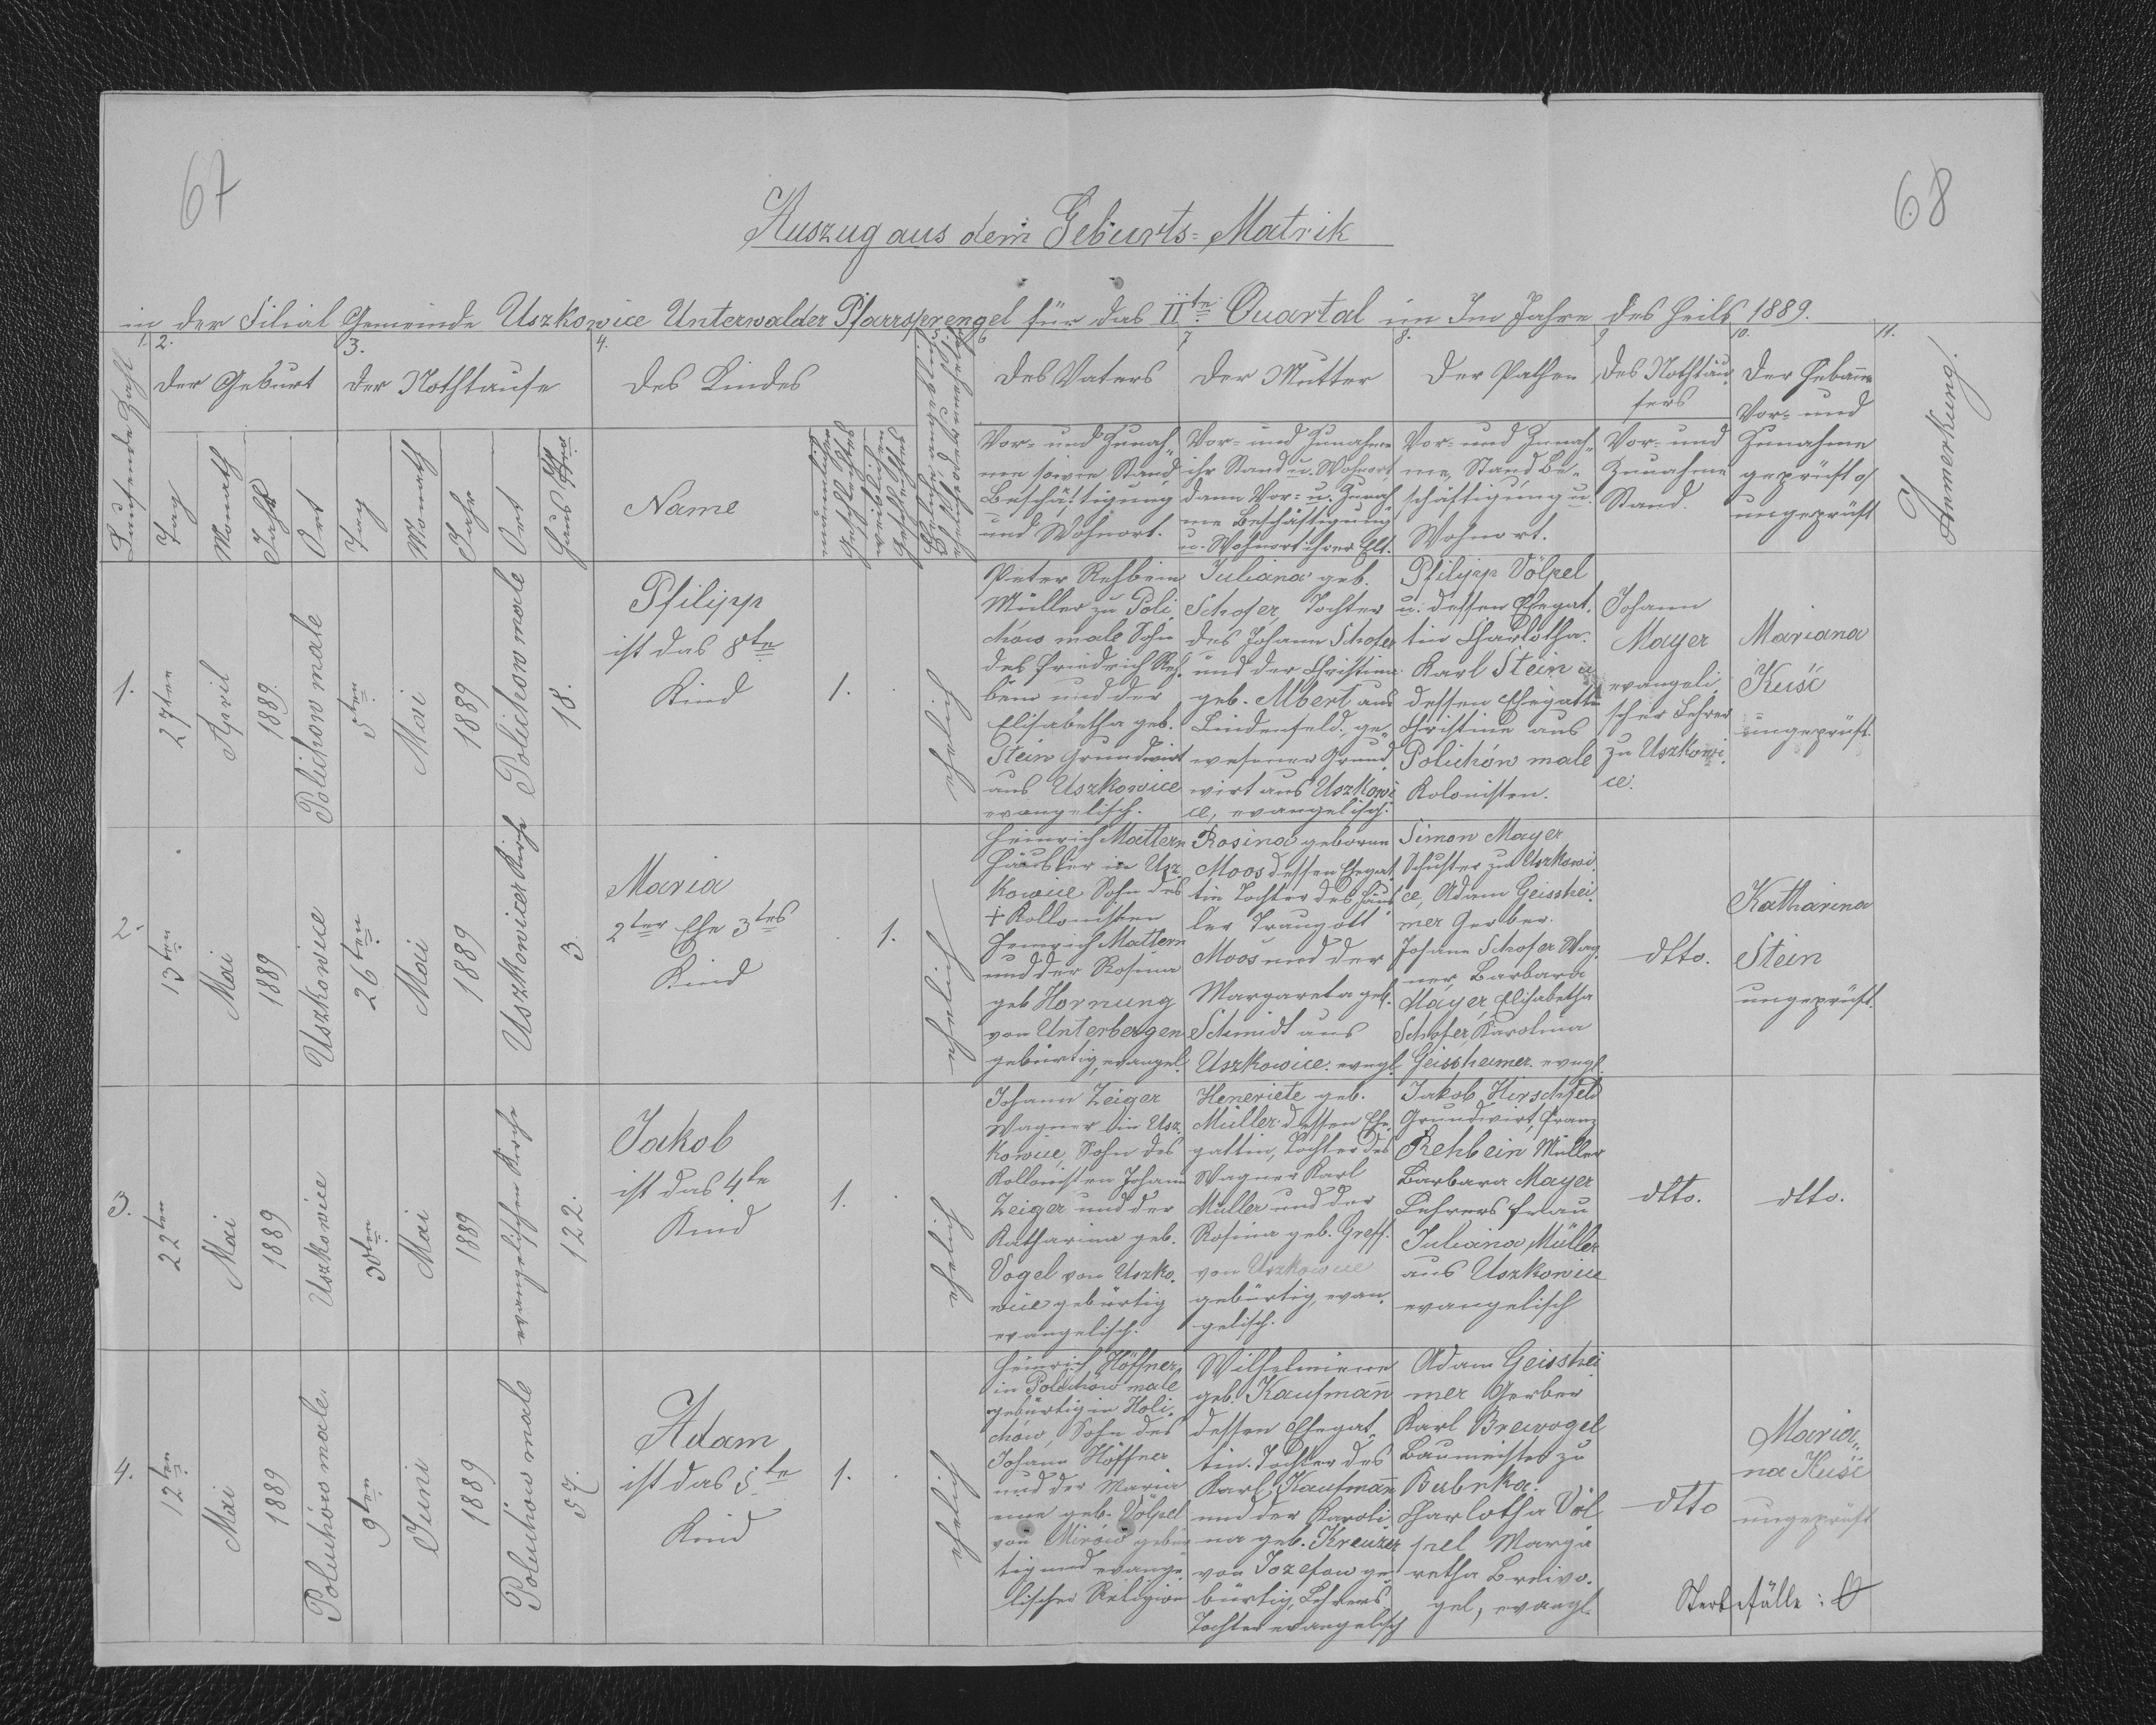 67
68
Auszug aus dem Geburts-Matrik
in der Filial Gemeinde Uszkowice Unterwalder Pfarrsprengel für das II te Quartal im Im Jahre des Heils 1889.
1. 2. 3. 4. 6 7 8. 9 10. 11.
Laufende Zahl
der Geburt
der Nothtaufe
des Kindes
des Vaters
der Mutter
der Pathen
des Nothtäu-
fers
der Hebame
Vor- und
Zunahme
geprüft o/
ungeprüft
Anmerkung!
Tag
Monath
Jahr
Ort
Tag
Monath
Jahr
Ort
Haus Nro
Name
männlichen
Geschlechtes
weiblichen
Geschlechtes
Vor- und Zunah-
me sowie Stand
Beschäftigung
und Wohnort.
Vor- und Zunahme
ihr Stand u. Wohnort
dann Vor- u. Zunah
me Beschäftigung
u. Wohnort ihrer Elt.
Vor- und Zunah-
me, Stand Be-
schäftigung u.
Wohnort.
Vor- und
Zunahme
Stand.
1.
27ten
April
1889.
Polichow male
5ten
Mai
1889
Polichow male
18.
Philipp
ist das 8te
Kind
1.
ehelich
Peter Rehbein
Müller zu Poli
chów male Sohn
des Friedrich Reh-
bein und der
Elisabetha geb.
Stein Grundwirt
aus Uszkowice
evangelisch.
Juliana geb.
Schofer, Tochter
des Johann Schofer
und der Christina
geb. Albert aus
Lindenfeld, ge-
wesener Grund-
wirt aus Uszkowi
ce, evangelisch.
Philipp Völpel
u. dessen Ehegat-
tin Charlotha.
Karl Stein u
dessen Ehegattin
Christine aus
Polichów male
Kolonisten.
Johann
Mayer
evangeli-
scher Lehrer
zu Uszkowi-
ce.
Mariana
Kuść
ungeprüft.
2.
13ten
Mai
1889
Uszkowice
26ten
Mai
1889
Uszkowicer Kirche
3.
Maria
2ter Ehe 3tes
Kind
1.
ehelich
Heinrich Mattern
Häusler in Usz-
kowice Sohn des
+ Kollonisten
Heinrich Mattern
und der Rosina
geb Hornung
von Unterbergen
gebürtig, evangel.
Rosina geborene
Moos dessen Ehegat
tin Tochter des Häus
ler Traugott
Moos und der
Margareta geb.
Schmidt aus
Uszkowice. evngl.
Simon Mayer
Schuster zu Uszkowi-
ce, Adam Geisshei-
mer Gerber.
Johann Schofer Wag-
ner, Barbara
Mayer, Elisabetha
Schofer, Karolina
Geissheimer. evngl.
dtto.
Katharina
Stein
ungeprüft.
3.
22ten
Mai
1889
Uszkowice
30ten
Mai
1889
evangelischen Kirche
122.
Jakob
ist das 4te
Kind
1.
ehelich
Johann Zeiger
Wagner in Usz-
kowice, Sohn des
Kollonisten Johann
Zeiger und der
Katharina geb.
Vogel von Uszko-
wice gebürtig
evangelisch.
Heneriete geb.
Müller dessen Ehe-
gattin, Tochter des
Wagner Karl
Müller und der
Rosina geb. Greff.
von Uszkowice
gebürtig, evan-
gelisch.
Jakob Hirschfeld
Grundwirt, Franz
Rehbein Müller
Barbara Mayer
Lehrers frau
Juliana Müller
aus Uszkowice
evangelisch
dtto.
dtto.
4.
12ten
Mai
1889
Polichów male.
9ten
Juni
1889
Polichów male
57.
Adam
ist das 5te
Kind
1.
ehelich
Heinrich Höffner,
in Polichów male
gebürtig in Holi-
chów, Sohn des
Johann Höffner
und der Maria
eine geb. Völpel
von Mirów gebür
tig und evange-
lischer Religion
Wilhelmiene
geb. Kaufmann
dessen Ehegat-
tin. Tochter des
Karl Kaufmann
und der Karoli
na geb. Kreuzer
von Jozefow ge-
bürtig, Lehrers
Tochter evangelisch
Adam Geisshei
mer Gerber
Karl Breivogel
Baumeister zu
Bubrka.
Charlotha Völ
pel Marga
retha Breivo-
gel, evangl.
dtto
Maria-
na Kuść
ungeprüft
Sterbefälle: 0